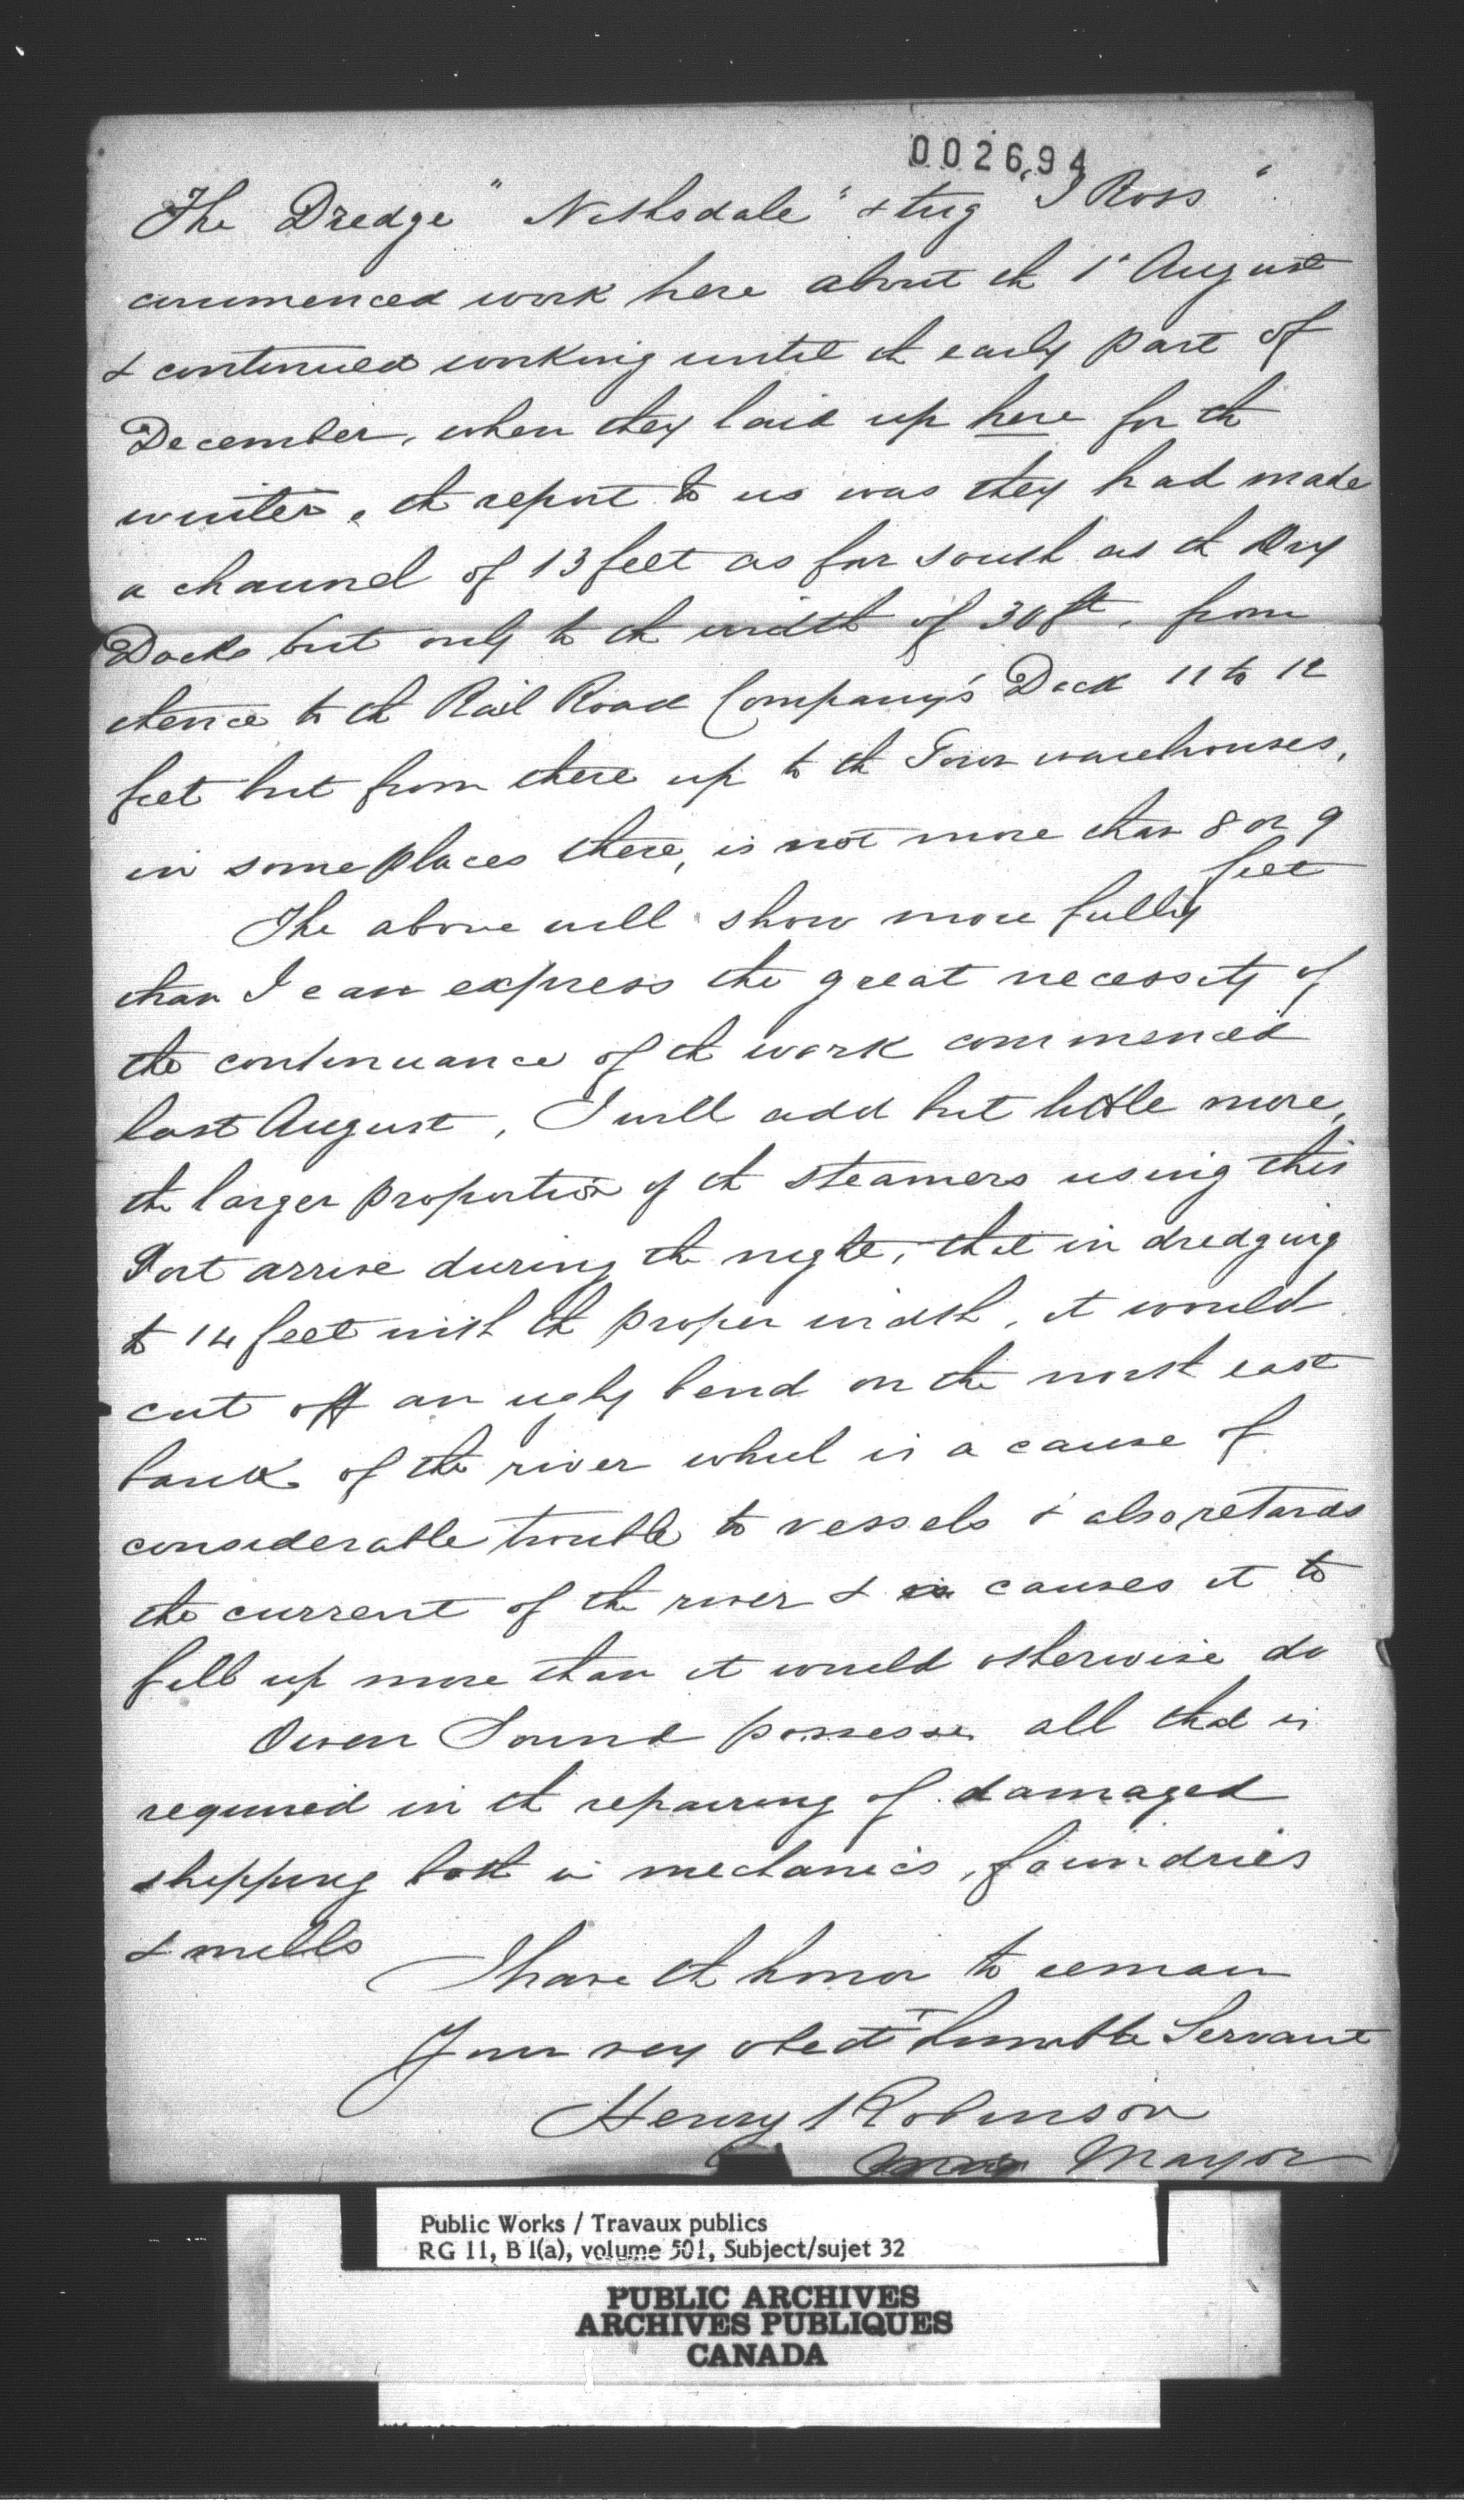 002694
The Dredge "Nithsdale" & tug "J Ross"
commenced work here about th 1st August
& continued working until th early part of
December, when they laid up here for th
winter, th report to us was they had made
a channel of 13 feet as far south as th Dry
Docks but only to th width of 30 ft, from
thence to th Rail Road Company's Dock 11 to 12
feet but from there up to th Town warehouses,
in some places there, is not more than 8 or 9
feet
The above will show more fully
than I can express the great necessity of
the continuance of th work commenced
last August, I will add but little more,
th larger proportion of th steamers using this
Port arrive during th night, that in dredging
to 14 feet with th proper width, it would
cut off an ugly bend on the north east
bank of the river which is a cause of
considerable trouble to vessels & also retards
the current of th river & causes it to
fill up more than it would otherwise do
Owen Sound possesses all that is
required in th repairing of damaged
shipping both in mechanics, foundries
& mills
I have th honor to remain
Your very obedt humble Servant
Henry Robinson
Mayor
Public Works / Travaux publics
RG 11, B 1(a), volume 501, Subject/sujet 32
PUBLIC ARCHIVES
ARCHIVES PUBLIQUES
CANADA